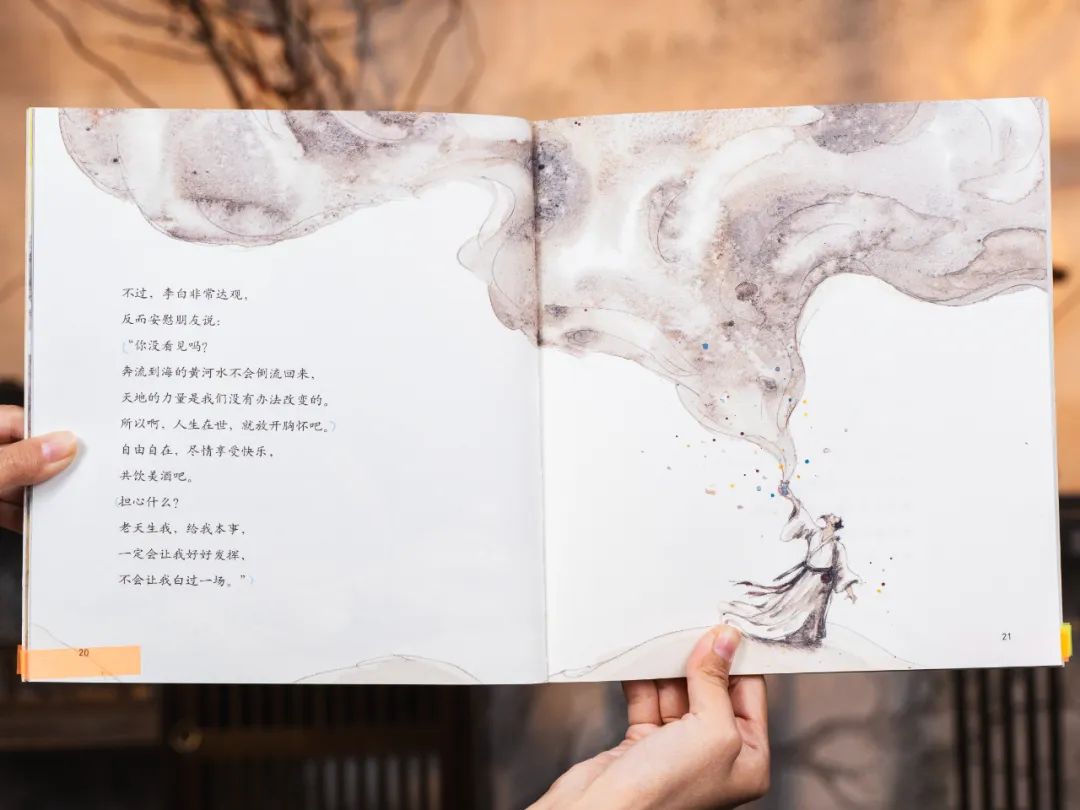 不过，李白非常达观，
反而安慰朋友说：
“你没看见吗？
奔流到海的黄河水不会倒流回来，
天地的力量是我们没有办法改变的。
所以啊，人生在世，就放开胸怀吧。
自由自在，尽情享受快乐，
共饮美酒吧。
担心什么？
老天生我，给我本事，
一定会让我好好发挥，
不会让我白过一场。”
20
21